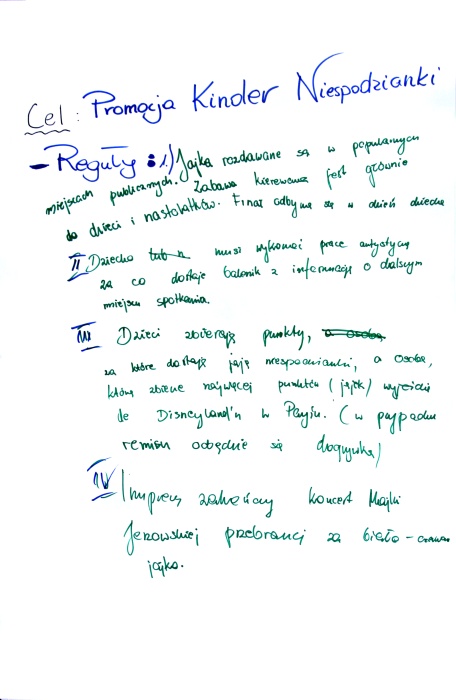 Cel: Promocja Kinder Niespodzianki
- Reguły: 1.) Jajka rozdawane są w popularnych
miejscach publicznych. Zabawa kierowana jest głównie
do dzieci i nastolatków. Finał odbywa się w dzień dziecka
II Dziecko musi wykonać prace artystyczną
za co dostaje balonik z informacją o dalszym
miejscu spotkania.
III Dzieci zbierają punkty,
za które dostają jaja niespodzianki, a osoba,
która zbierze najwięcej punktów (jajek) wyjeżdża
do Disneyland'u w Paryżu. (w przypadku
remisu odbędzie się dogrywka)
IV Imprezę zakończy koncert Majki
Jeżowskiej przebranej za biało-czerwone
jajko.